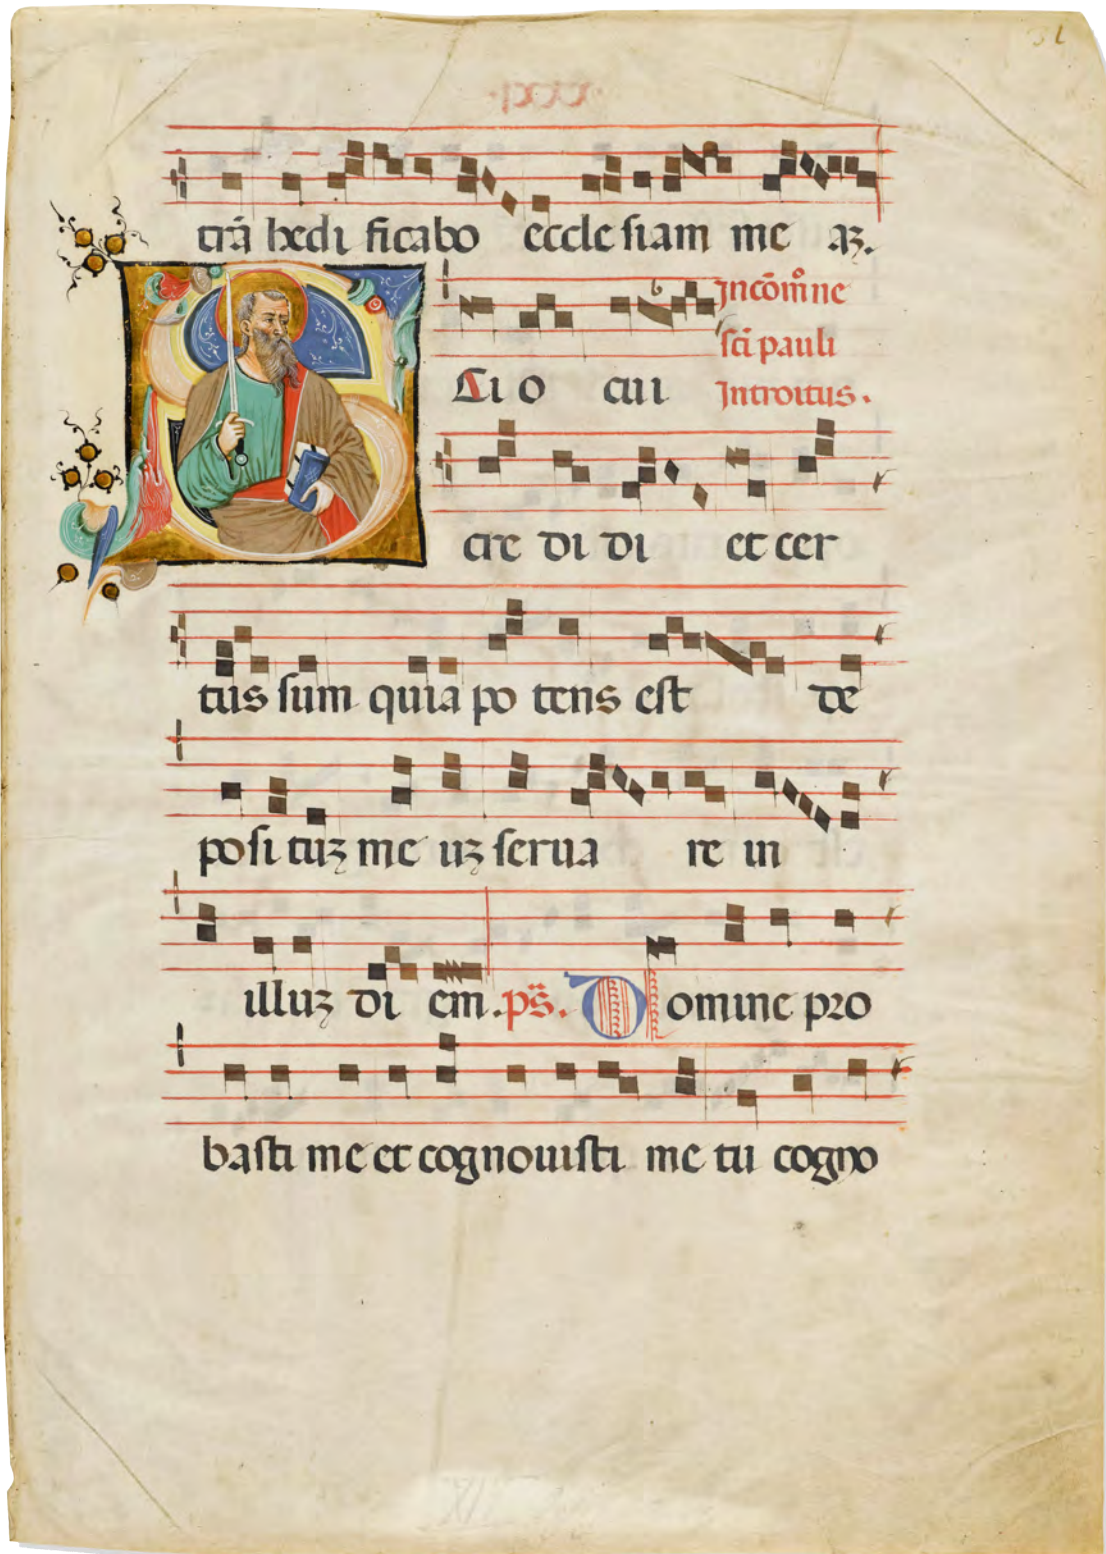 ·lxxx·
trā hedi ficabo eccle siam me aꝫ.
In cōm̄oe
sc̄i pauli
Introitus.
Scio cui
cre di di et cer
tus sum quia po tens est de
posi tuꝫ me uꝫ serua re in
illuꝫ di em. ps̄. Domine pro
basti me et cognouisti me tu cogno